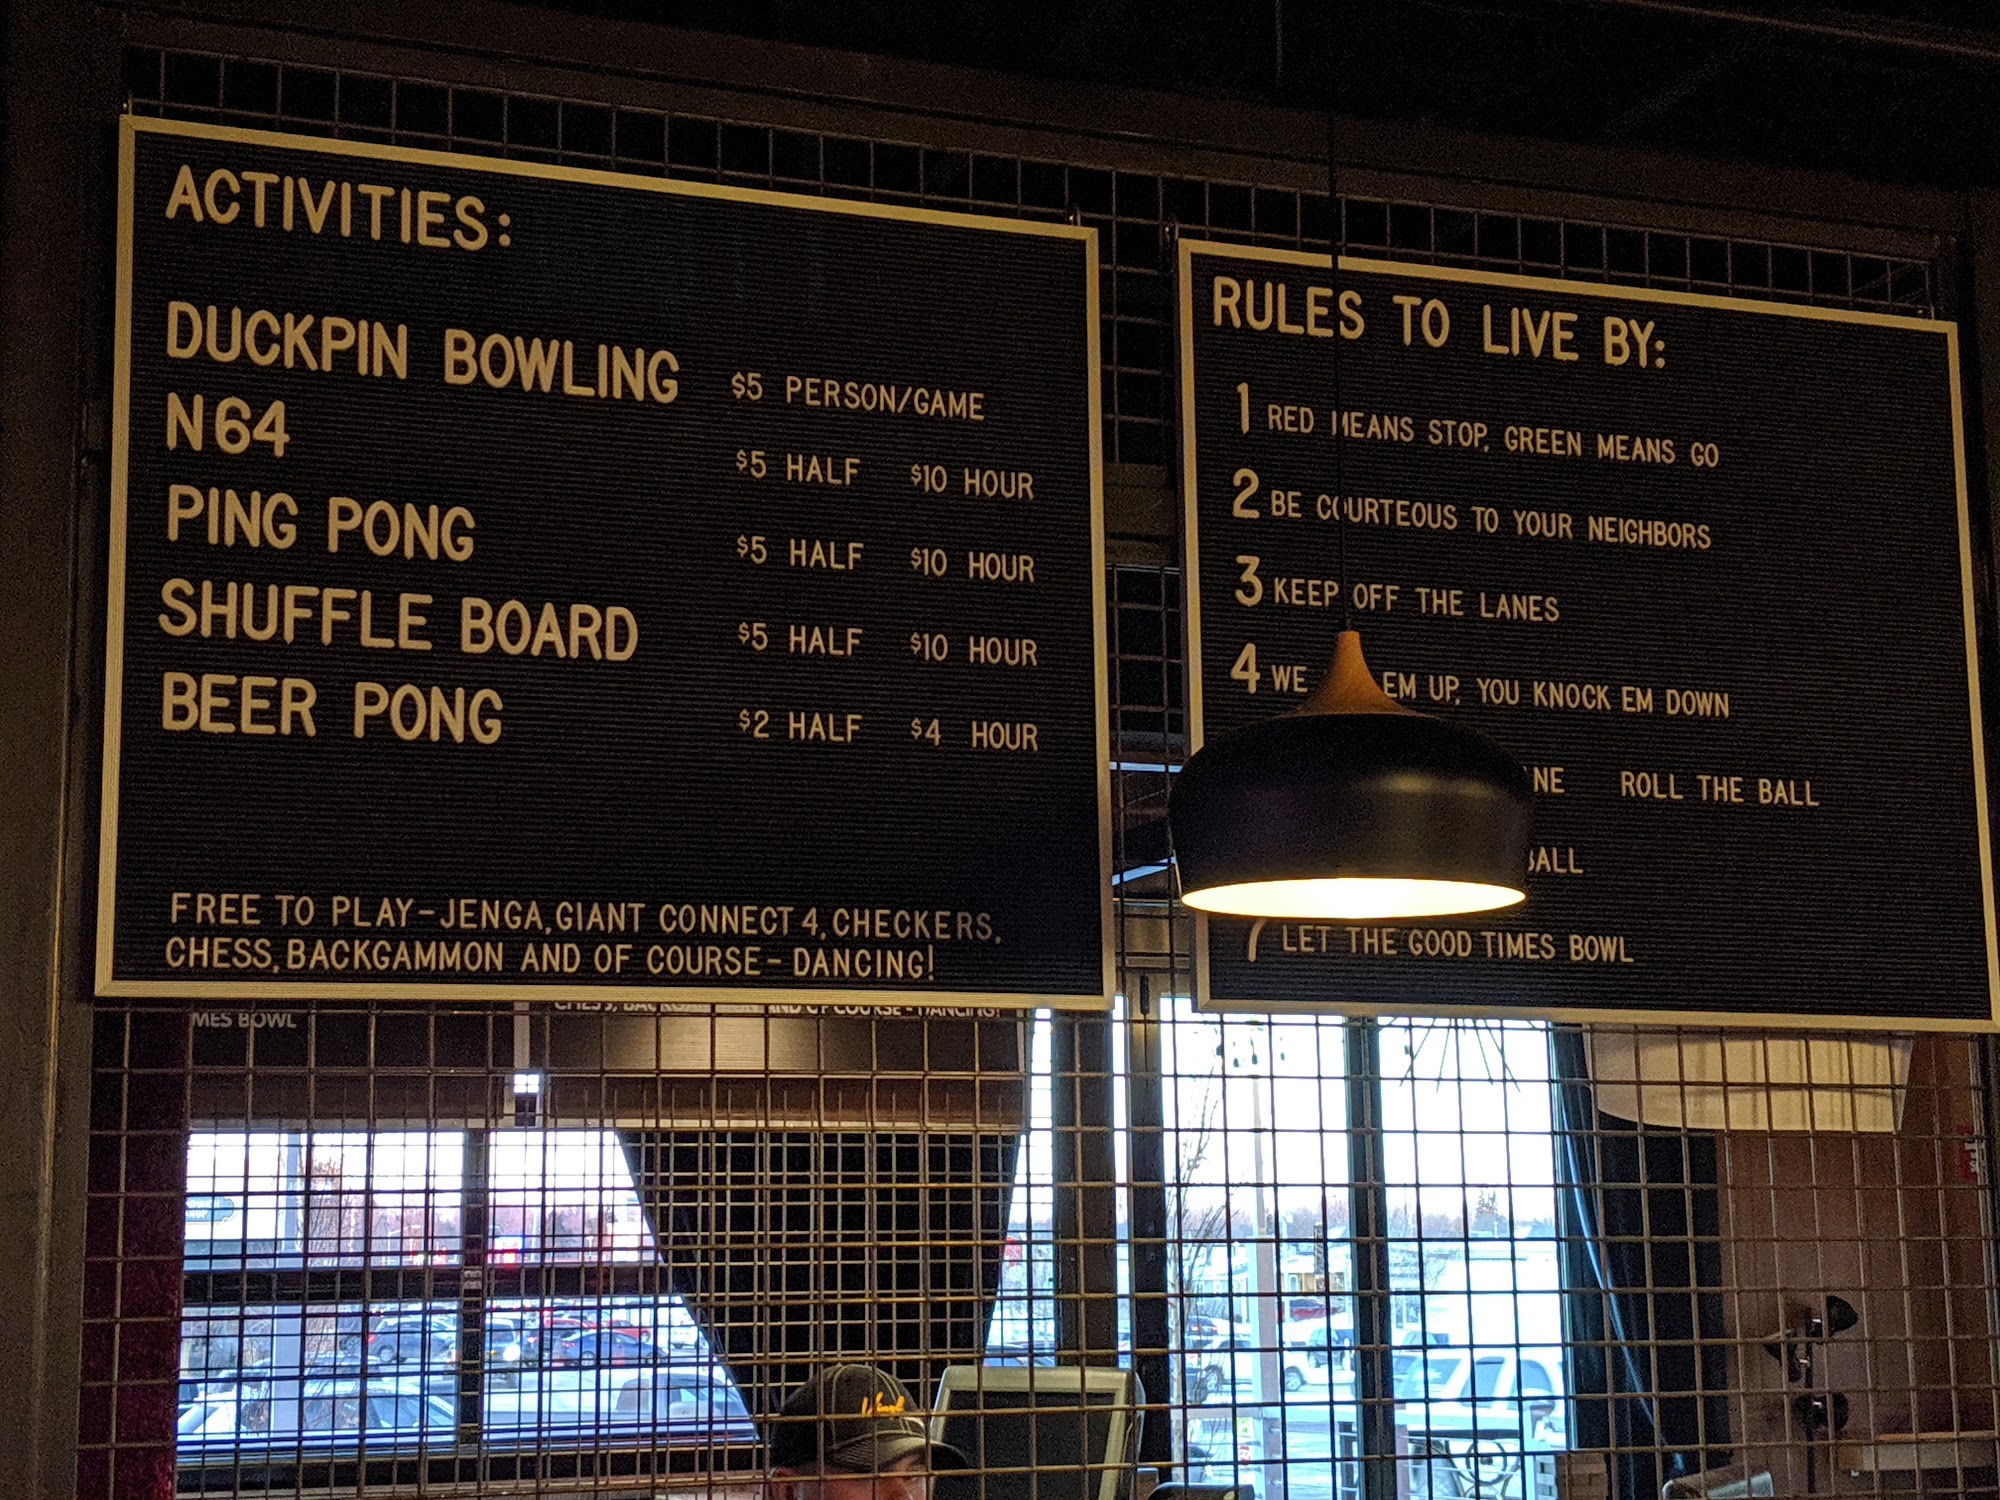 ACTIVITIES:
DUCKPIN BOWLING $5 PERSON/GAME
N64 $5 HALF $10 HOUR
PING PONG $5 HALF $10 HOUR
SHUFFLE BOARD $5 HALF $10 HOUR
BEER PONG $2 HALF $4 HOUR
FREE TO PLAY-JENGA, GIANT CONNECT 4, CHECKERS,
CHESS, BACKGAMMON AND OF COURSE - DANCING!
RULES TO LIVE BY:
1 RED MEANS STOP, GREEN MEANS GO
2 BE COURTEOUS TO YOUR NEIGHBORS
3 KEEP OFF THE LANES
4 WE EM UP, YOU KNOCK EM DOWN
ROLL THE BALL
BALL
7 LET THE GOOD TIMES BOWL
MES BOWL
CHESS, BACKGA AND OF COURSE - DANCING!